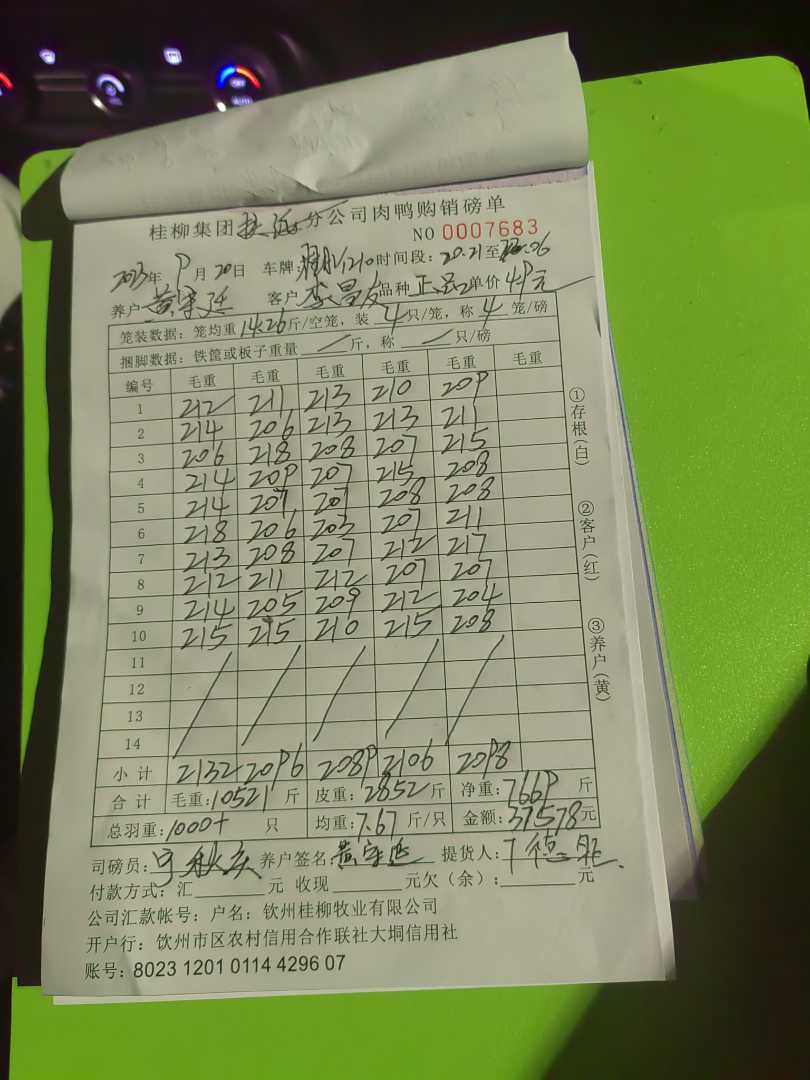 桂柳集团 分公司肉鸭购销磅单
NO 0007683
2023年 9月20日 车牌: 1210 时间段: 20:21至 :06
养户 黄守延 客户 李昌友 品种 正品 单价 49元
笼装数据: 笼均重 14.26 斤/空笼, 装 4 只/笼, 称 4 笼/磅
捆脚数据: 铁筐或板子重量 / 斤, 称 / 只/磅
编号 毛重 毛重 毛重 毛重 毛重 毛重
1 212 211 213 210 209
2 214 206 213 213 211
3 206 218 208 207 215
4 214 209 207 215 208
5 214 207 207 208 208
6 218 206 203 207 211
7 213 208 207 212 217
8 212 211 212 207 207
9 214 205 209 212 204
10 215 215 210 215 208
11
12
13
14
小计 2132 2096 2089 2106 2098
合计 毛重: 10521 斤 皮重: 2852 斤 净重: 7669 斤
总羽重: 1000+ 只 均重: 7.67 斤/只 金额: 37578元
司磅员: 秋 养户签名 黄守延 提货人: 德
付款方式: 汇 元 收现 元欠(余): 元
公司汇款帐号: 户名: 钦州桂柳牧业有限公司
开户行: 钦州市区农村信用合作联社大垌信用社
账号: 8023 1201 0114 4296 07
①存根(白)
②客户(红)
③养户(黄)